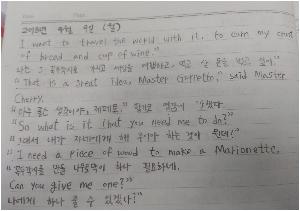 2018년 4월 9일 (월)
I want to travel the world with it, to earn my crust
of bread and cup of wine."
나는 그 꼭두각시를 가지고 세상을 여행하고, 먹고 살 돈을 벌고 싶어."
"That is a great idea, Master Geppetto," said Master
Cherry.
"아주 좋은 생각이야, 제페토," 체리 영감이 말했다.
"So what is it that you need me to do?"
"그래서 내가 자네에게 해 주어야 하는 것이 뭔데?"
"I need a piece of wood to make a Marionette.
"꼭두각시를 만들 나무토막이 하나 필요하네.
Can you give me one?"
나에게 하나 줄 수 있겠나?"